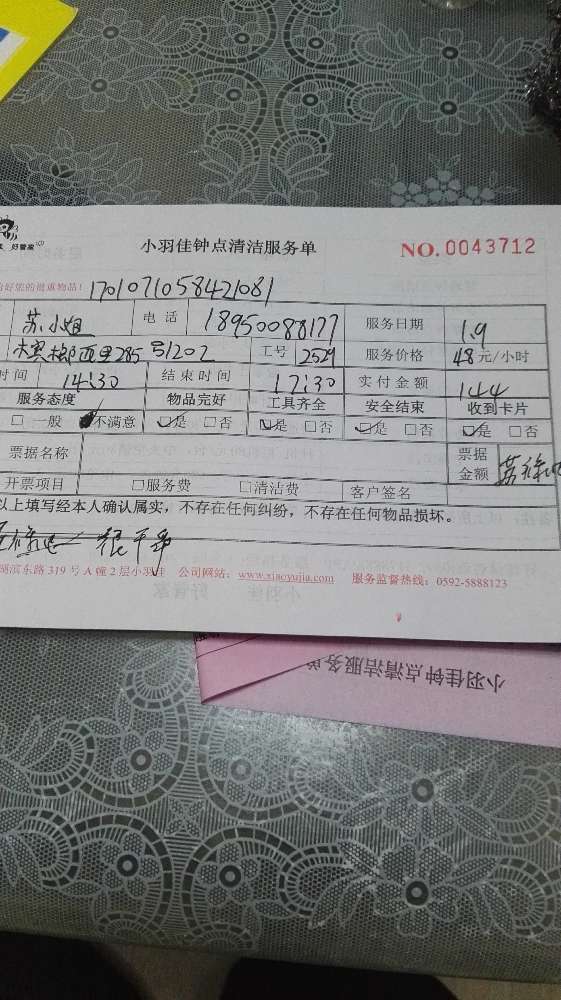 好管家
小羽佳钟点清洁服务单 NO. 0043712
好您的贵重物品! 1701071058421081
苏小姐 电话 18950088177 服务日期 1.9
285号1202 工号 2529 服务价格 48元/小时
时间 14:30 结束时间 17:30 实付金额 144
服务态度 物品完好 工具齐全 安全结束 收到卡片
□一般 不满意 ☑是 □否 ☑是 □否 ☑是 □否 ☑是 □否
票据名称 票据金额
开票项目 □服务费 □清洁费 客户签名
以上填写经本人确认属实,不存在任何纠纷,不存在任何物品损坏。
很干净
湖滨东路 319 号 A 幢 2 层小羽佳 公司网站:www.xiaoyujia.com 服务监督热线:0592-5888123
小羽佳钟点清洁服务单